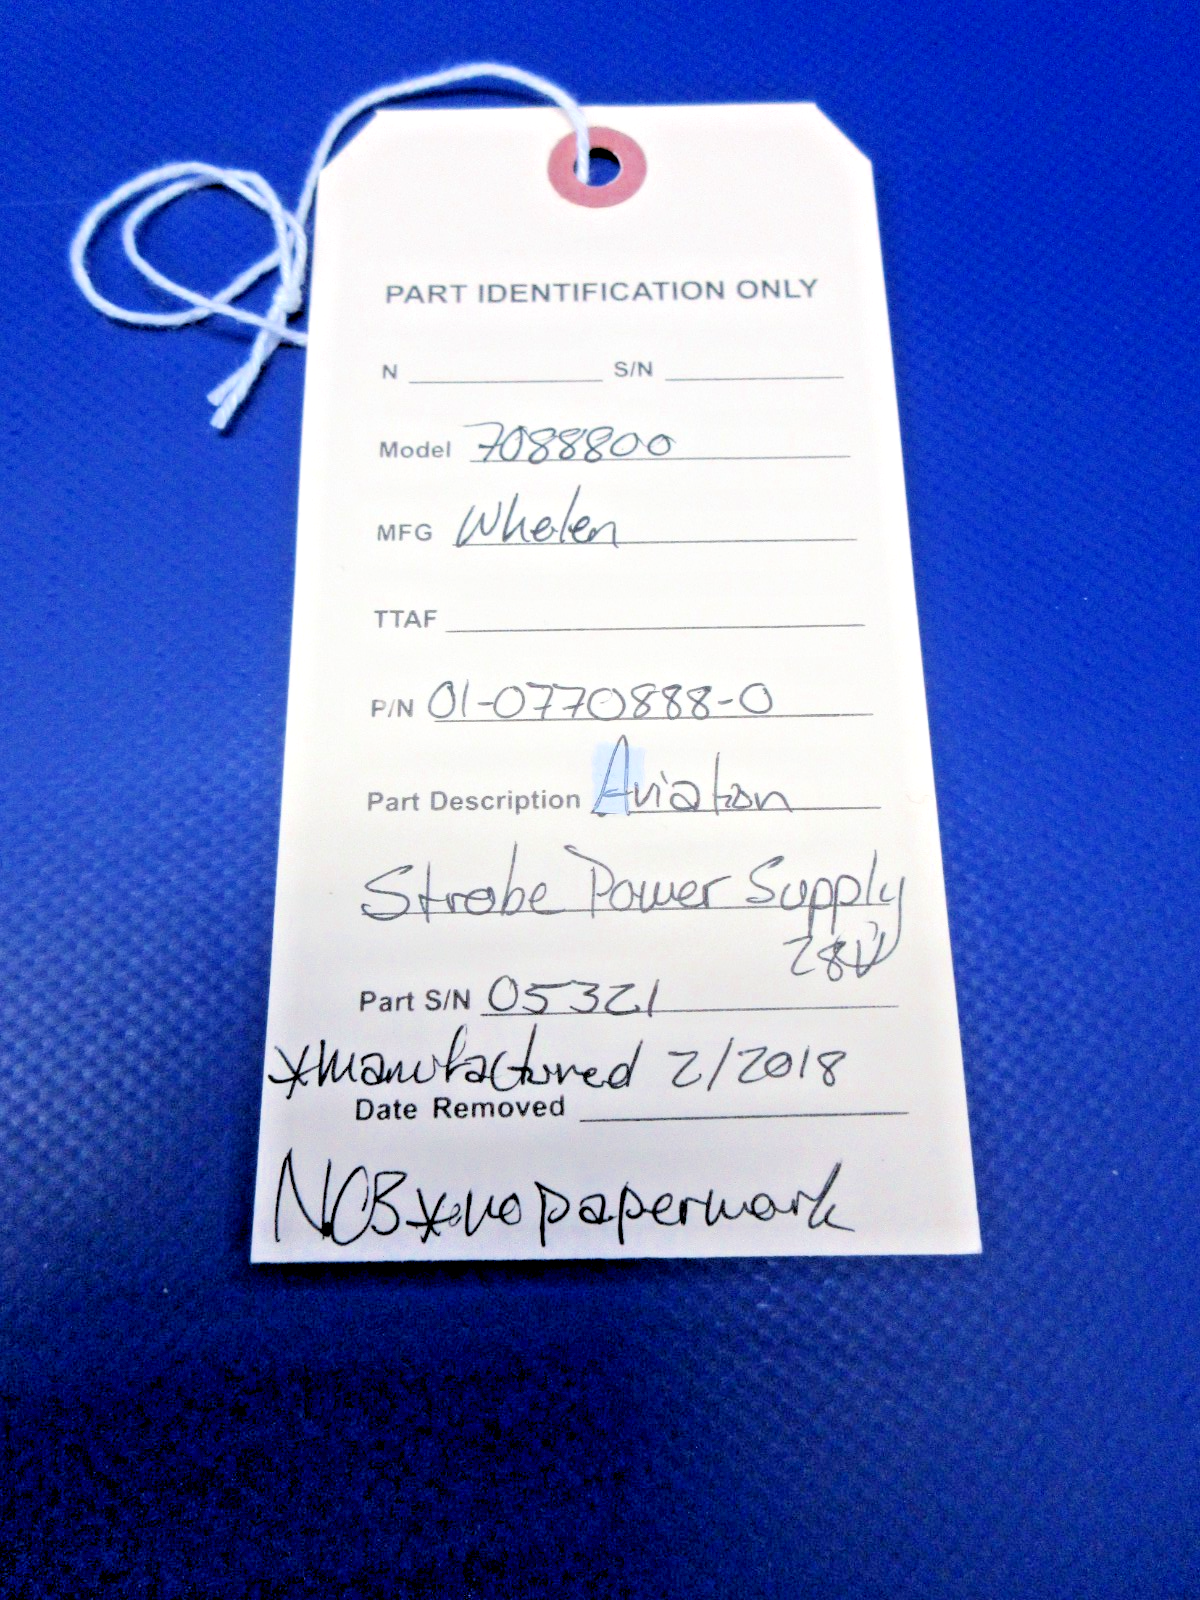 PART IDENTIFICATION ONLY
N S/N
Model 7088800
MFG Whelen
TTAF
P/N 01-0770888-0
Part Description Aviation
Strobe Power Supply
28V
Part S/N 05321
*manufactured 2/2018
Date Removed
NOB*no paperwork